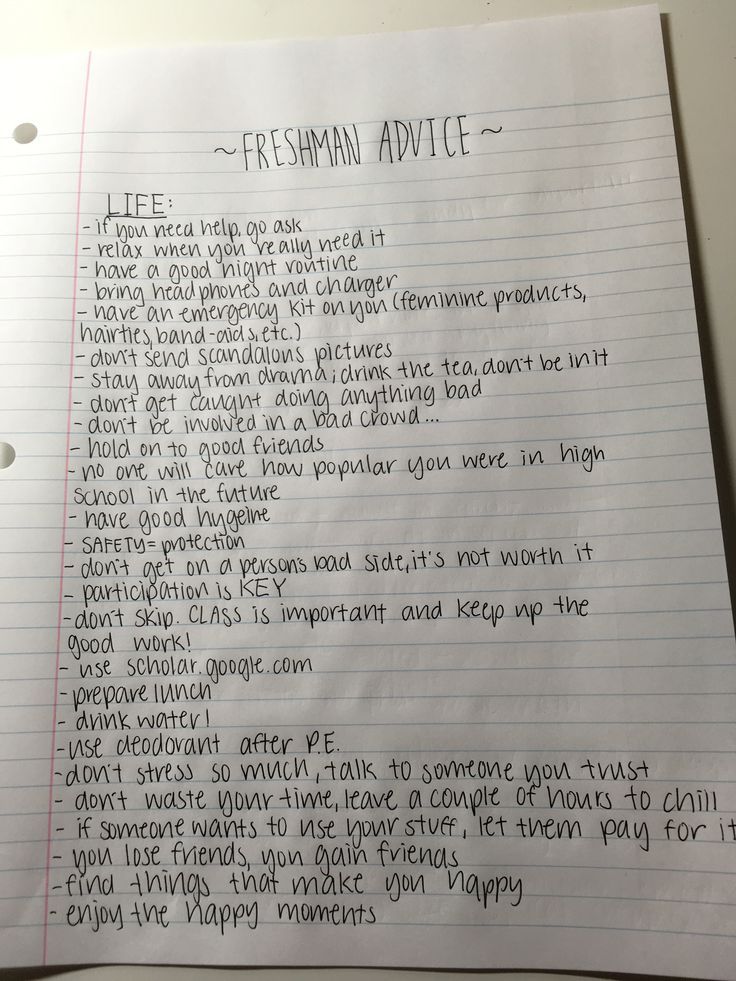 ~ FRESHMAN ADVICE ~
LIFE:
- if you need help, go ask
- relax when you really need it
- have a good night routine
- bring headphones and charger
- have an emergency kit on you (feminine products,
hairties, band-aids, etc.)
- don't send scandalous pictures
- stay away from drama; drink the tea, don't be in it
- don't get caught doing anything bad
- don't be involved in a bad crowd...
- hold on to good friends
- no one will care how popular you were in high
school in the future
- have good hygeine
- SAFETY = protection
- don't get on a person's bad side, it's not worth it
- participation is KEY
- don't skip. CLASS is important and keep up the
good work!
- use scholar.google.com
- prepare lunch
- drink water!
- use deodorant after P.E.
- don't stress so much, talk to someone you trust
- don't waste your time, leave a couple of hours to chill
- if someone wants to use your stuff, let them pay for it
- you lose friends, you gain friends
- find things that make you happy
- enjoy the happy moments